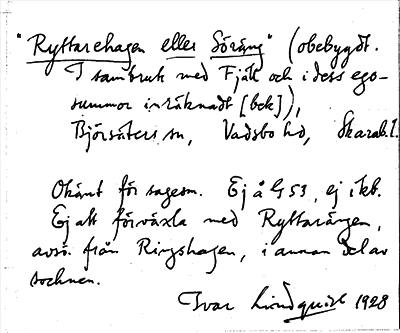 "Ryttarehagen eller Söräng" (obebyggt.
I sambruk med Fjäll och i dess ego-
summor inräknadt [bek]),
Björsäters sn, Vadsbo hd, Skarab. l.
Okänt för sagesm. Ej å G 53, ej i kb.
Ej att förväxla med Ryttarängen,
avsö. från Ringshagen, i annan del av
socknen.
Ivar Lindquist 1928